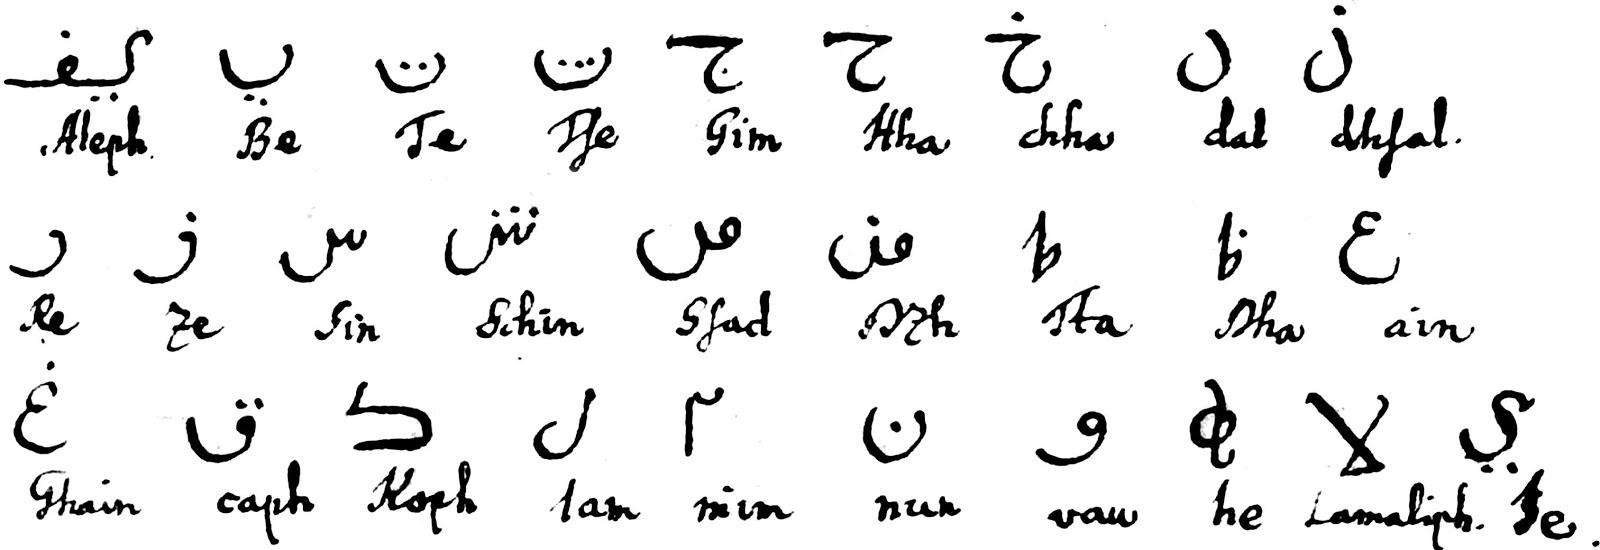 ب ت ث ج ح خ د ذ
Aleph Be Te Tſe Gim Hha chha dal dhſal.
ر ز س ش ص ض ط ظ ع
Re Ze Sin Schin Sſad Dzh Tta Dha ain
غ ق ک ل م ن و ه لا ي
Ghain caph Koph lam mim nun vau he Lamaliph. Je.